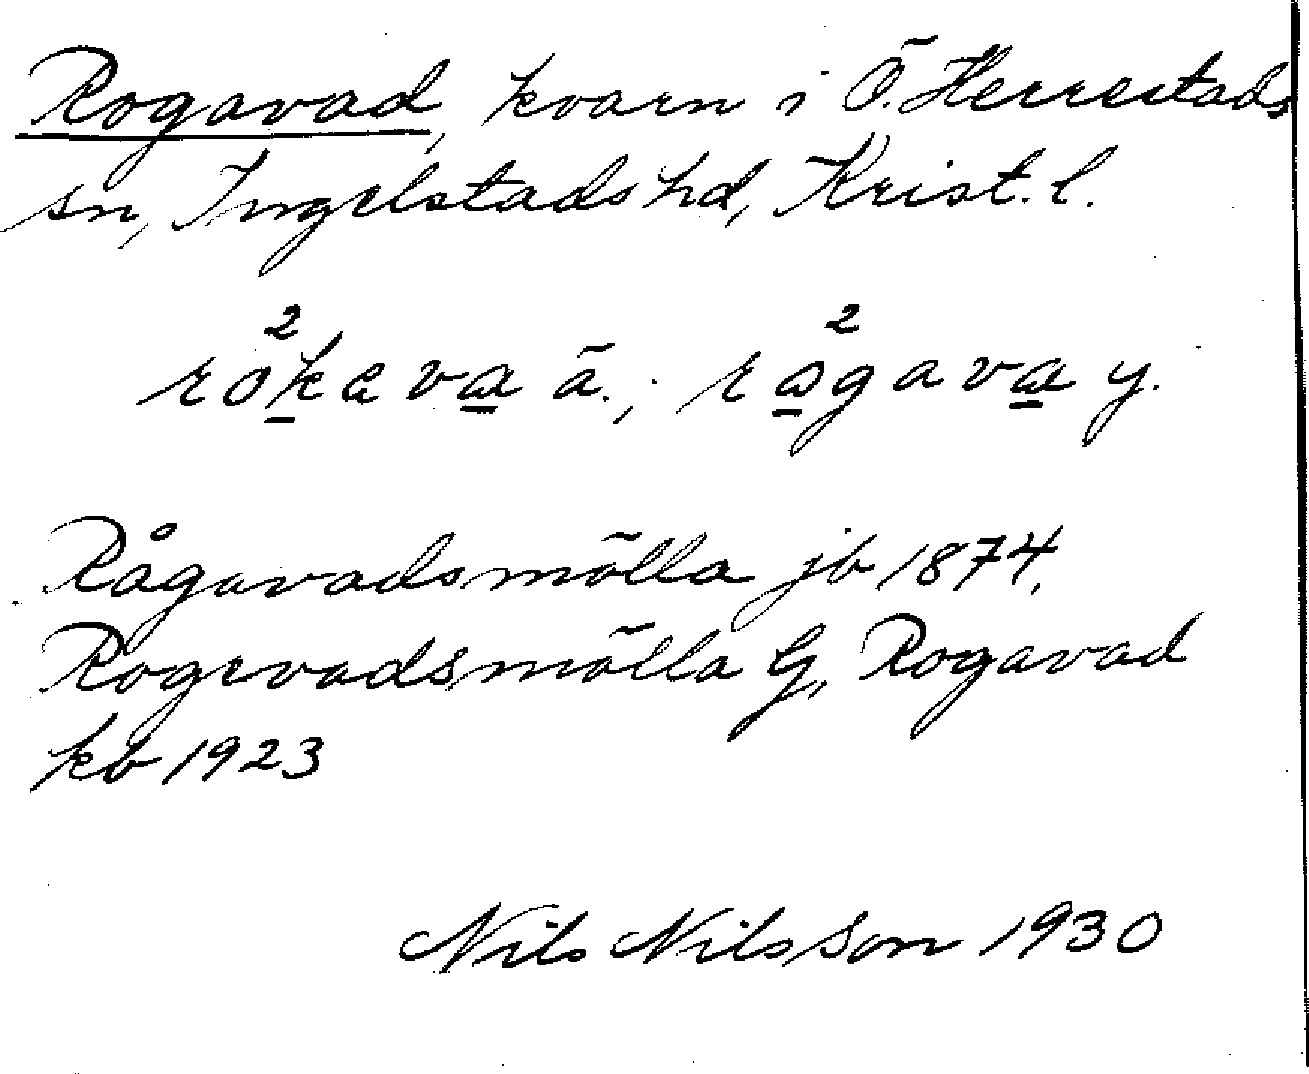 Rogavad, kvarn i Ö. Herrestads
sn, Ingelstads hd, Krist. l.
ro²keva ä.; rå²gava y.
Rågavadsmölla jb 1874,
Rogevadsmölla G, Rogavad
kb 1923
Nils Nilsson 1930